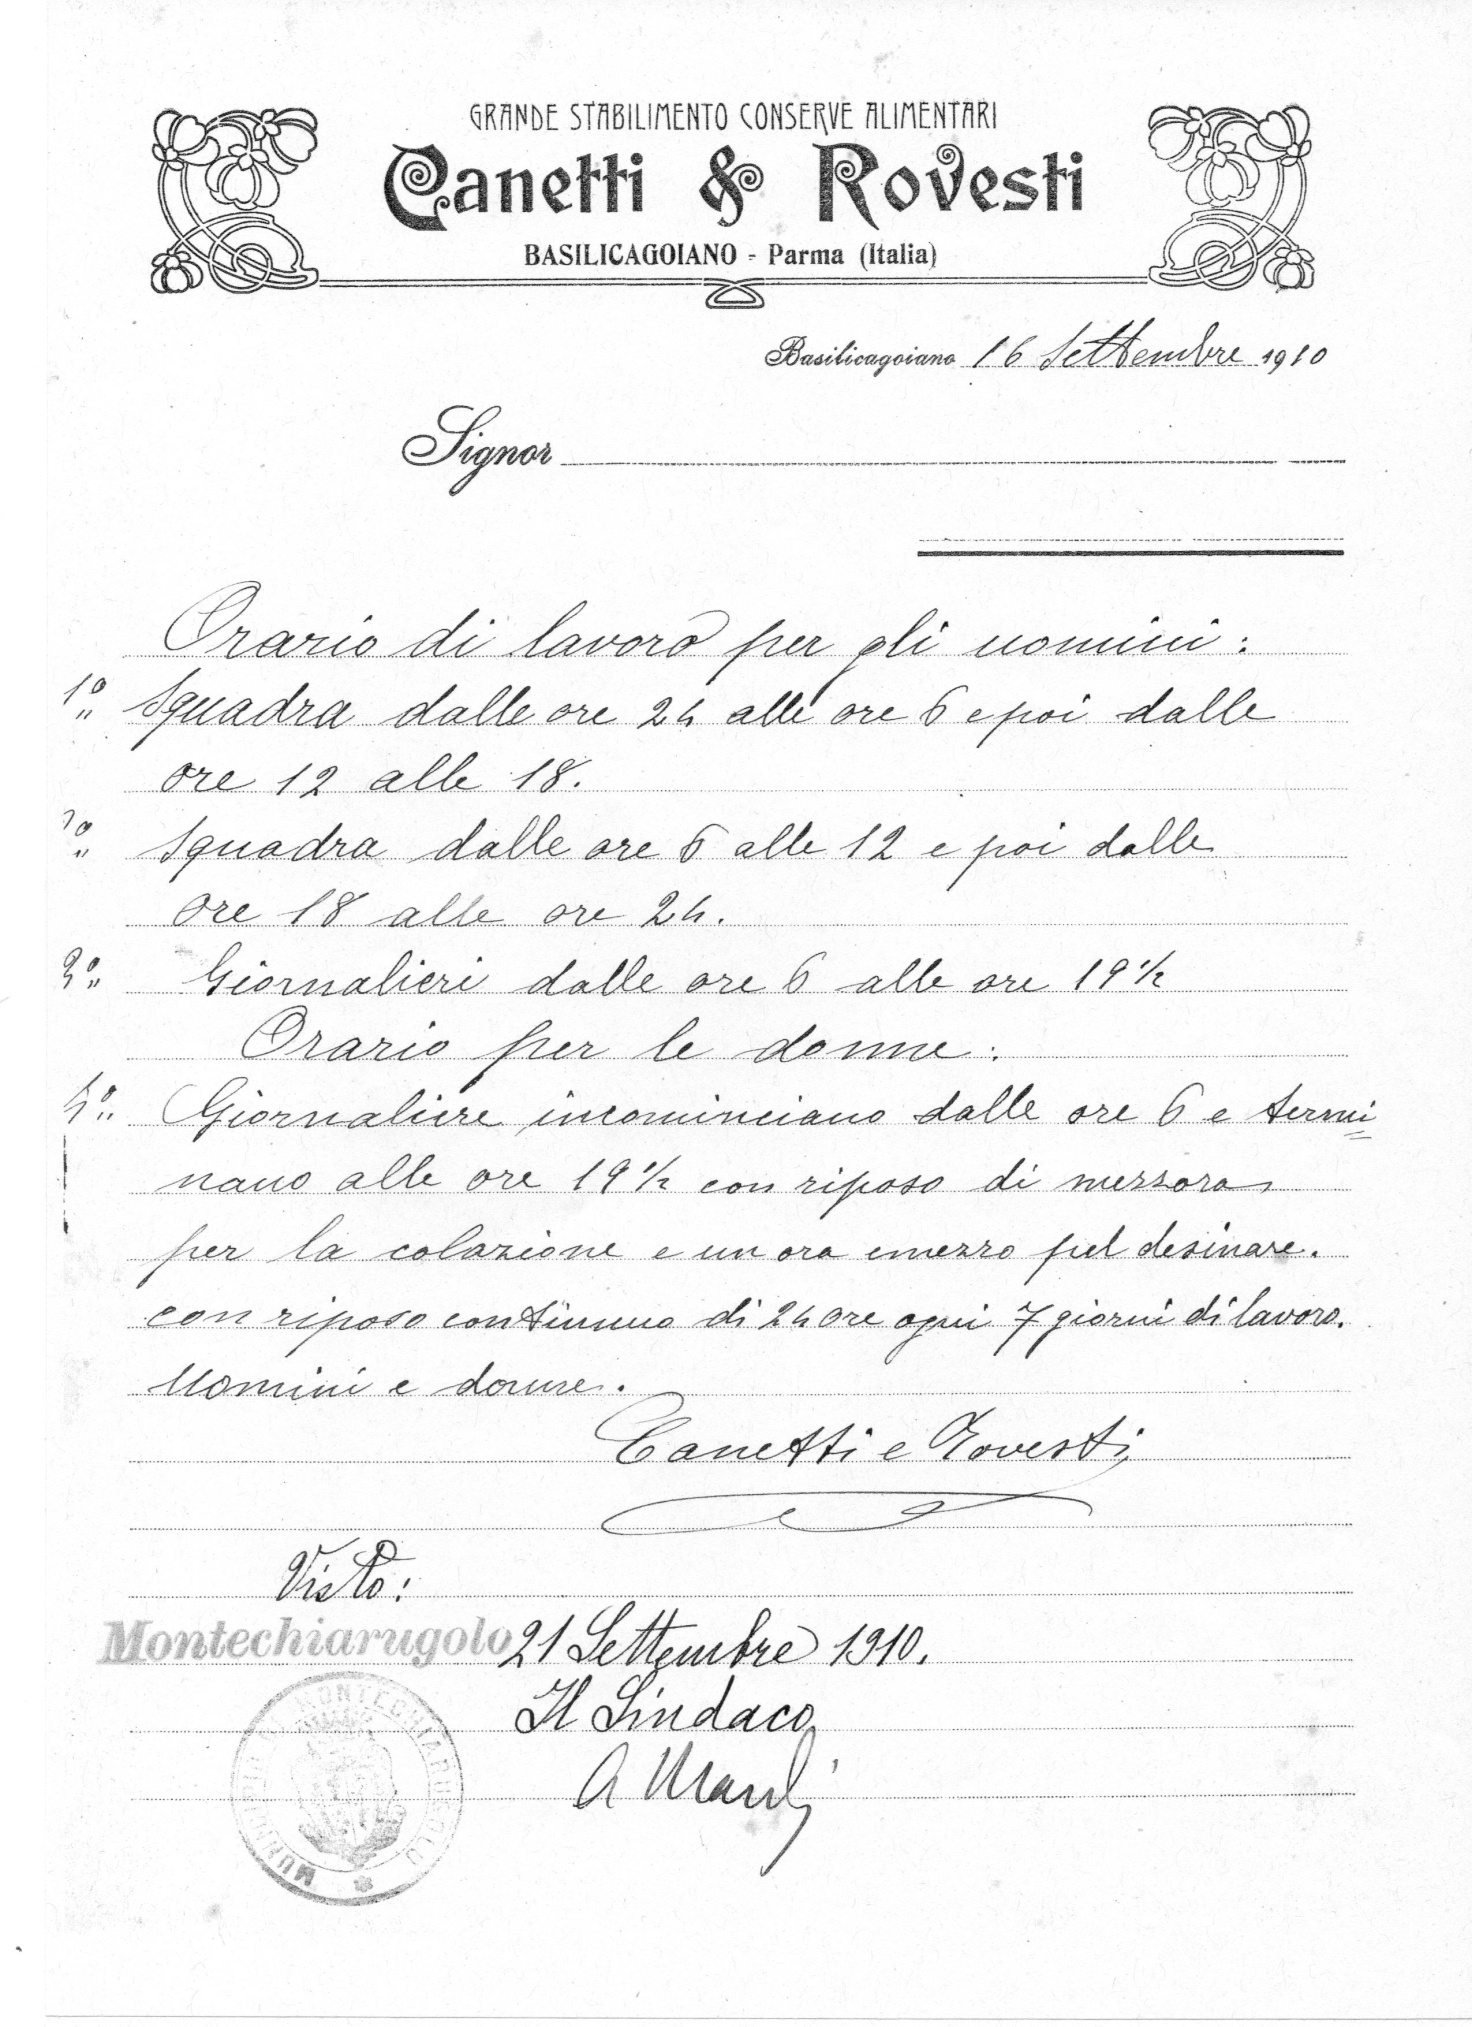 GRANDE STABILIMENTO CONSERVE ALIMENTARI
Canetti & Rovesti
BASILICAGOIANO - Parma (Italia)
Basilicagoiano 16 Settembre 1910
Signor
Orario di lavoro per gli uomini:
1º Squadra dalle ore 24 alle ore 6 e poi dalle
ore 12 alle 18.
2º Squadra dalle ore 6 alle 12 e poi dalle
ore 18 alle ore 24.
3º Giornalieri dalle ore 6 alle ore 19 1/2
Orario per le donne:
4º Giornaliere incominciano dalle ore 6 e termi=
nano alle ore 19 1/2 con riposo di mezzora
per la colazione e un ora emezzo pel desinare.
con riposo continuuo di 24 ore ogni 7 giorni di lavoro.
Uomini e donne.
Canetti e Rovesti
Visto:
Montechiarugolo 21 Settembre 1910.
Il Sindaco
A
MUNICIPIO DI MONTECHIARUGOLO